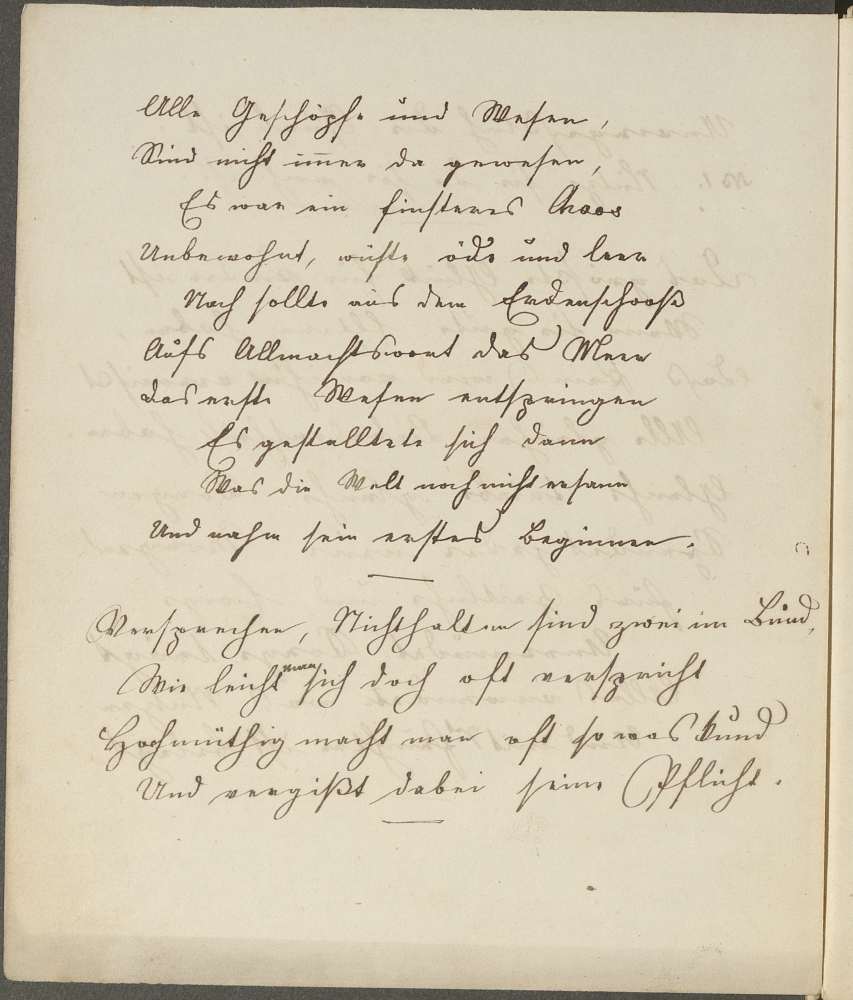 Alle Geschöpfe und Wesen,
Sind nicht im̅er da gewesen,
Es war ein finsteres Chaos
Unbewohnt, wüste öde und leer
Noch sollte aus dem Erdenschooß
Aufs Allmachtswort das Meer
das erste Wesen entspringen
Es gestalltete sich dann
Was die Welt noch nicht ersann
Und nahm sein erstes Beginnen.
Versprechen, Nichthalten sind zwei im Bund,
Wie leicht man sich doch oft verspricht
Hochmüthig macht man oft so was kund
Und vergißt dabei seine Pflicht.